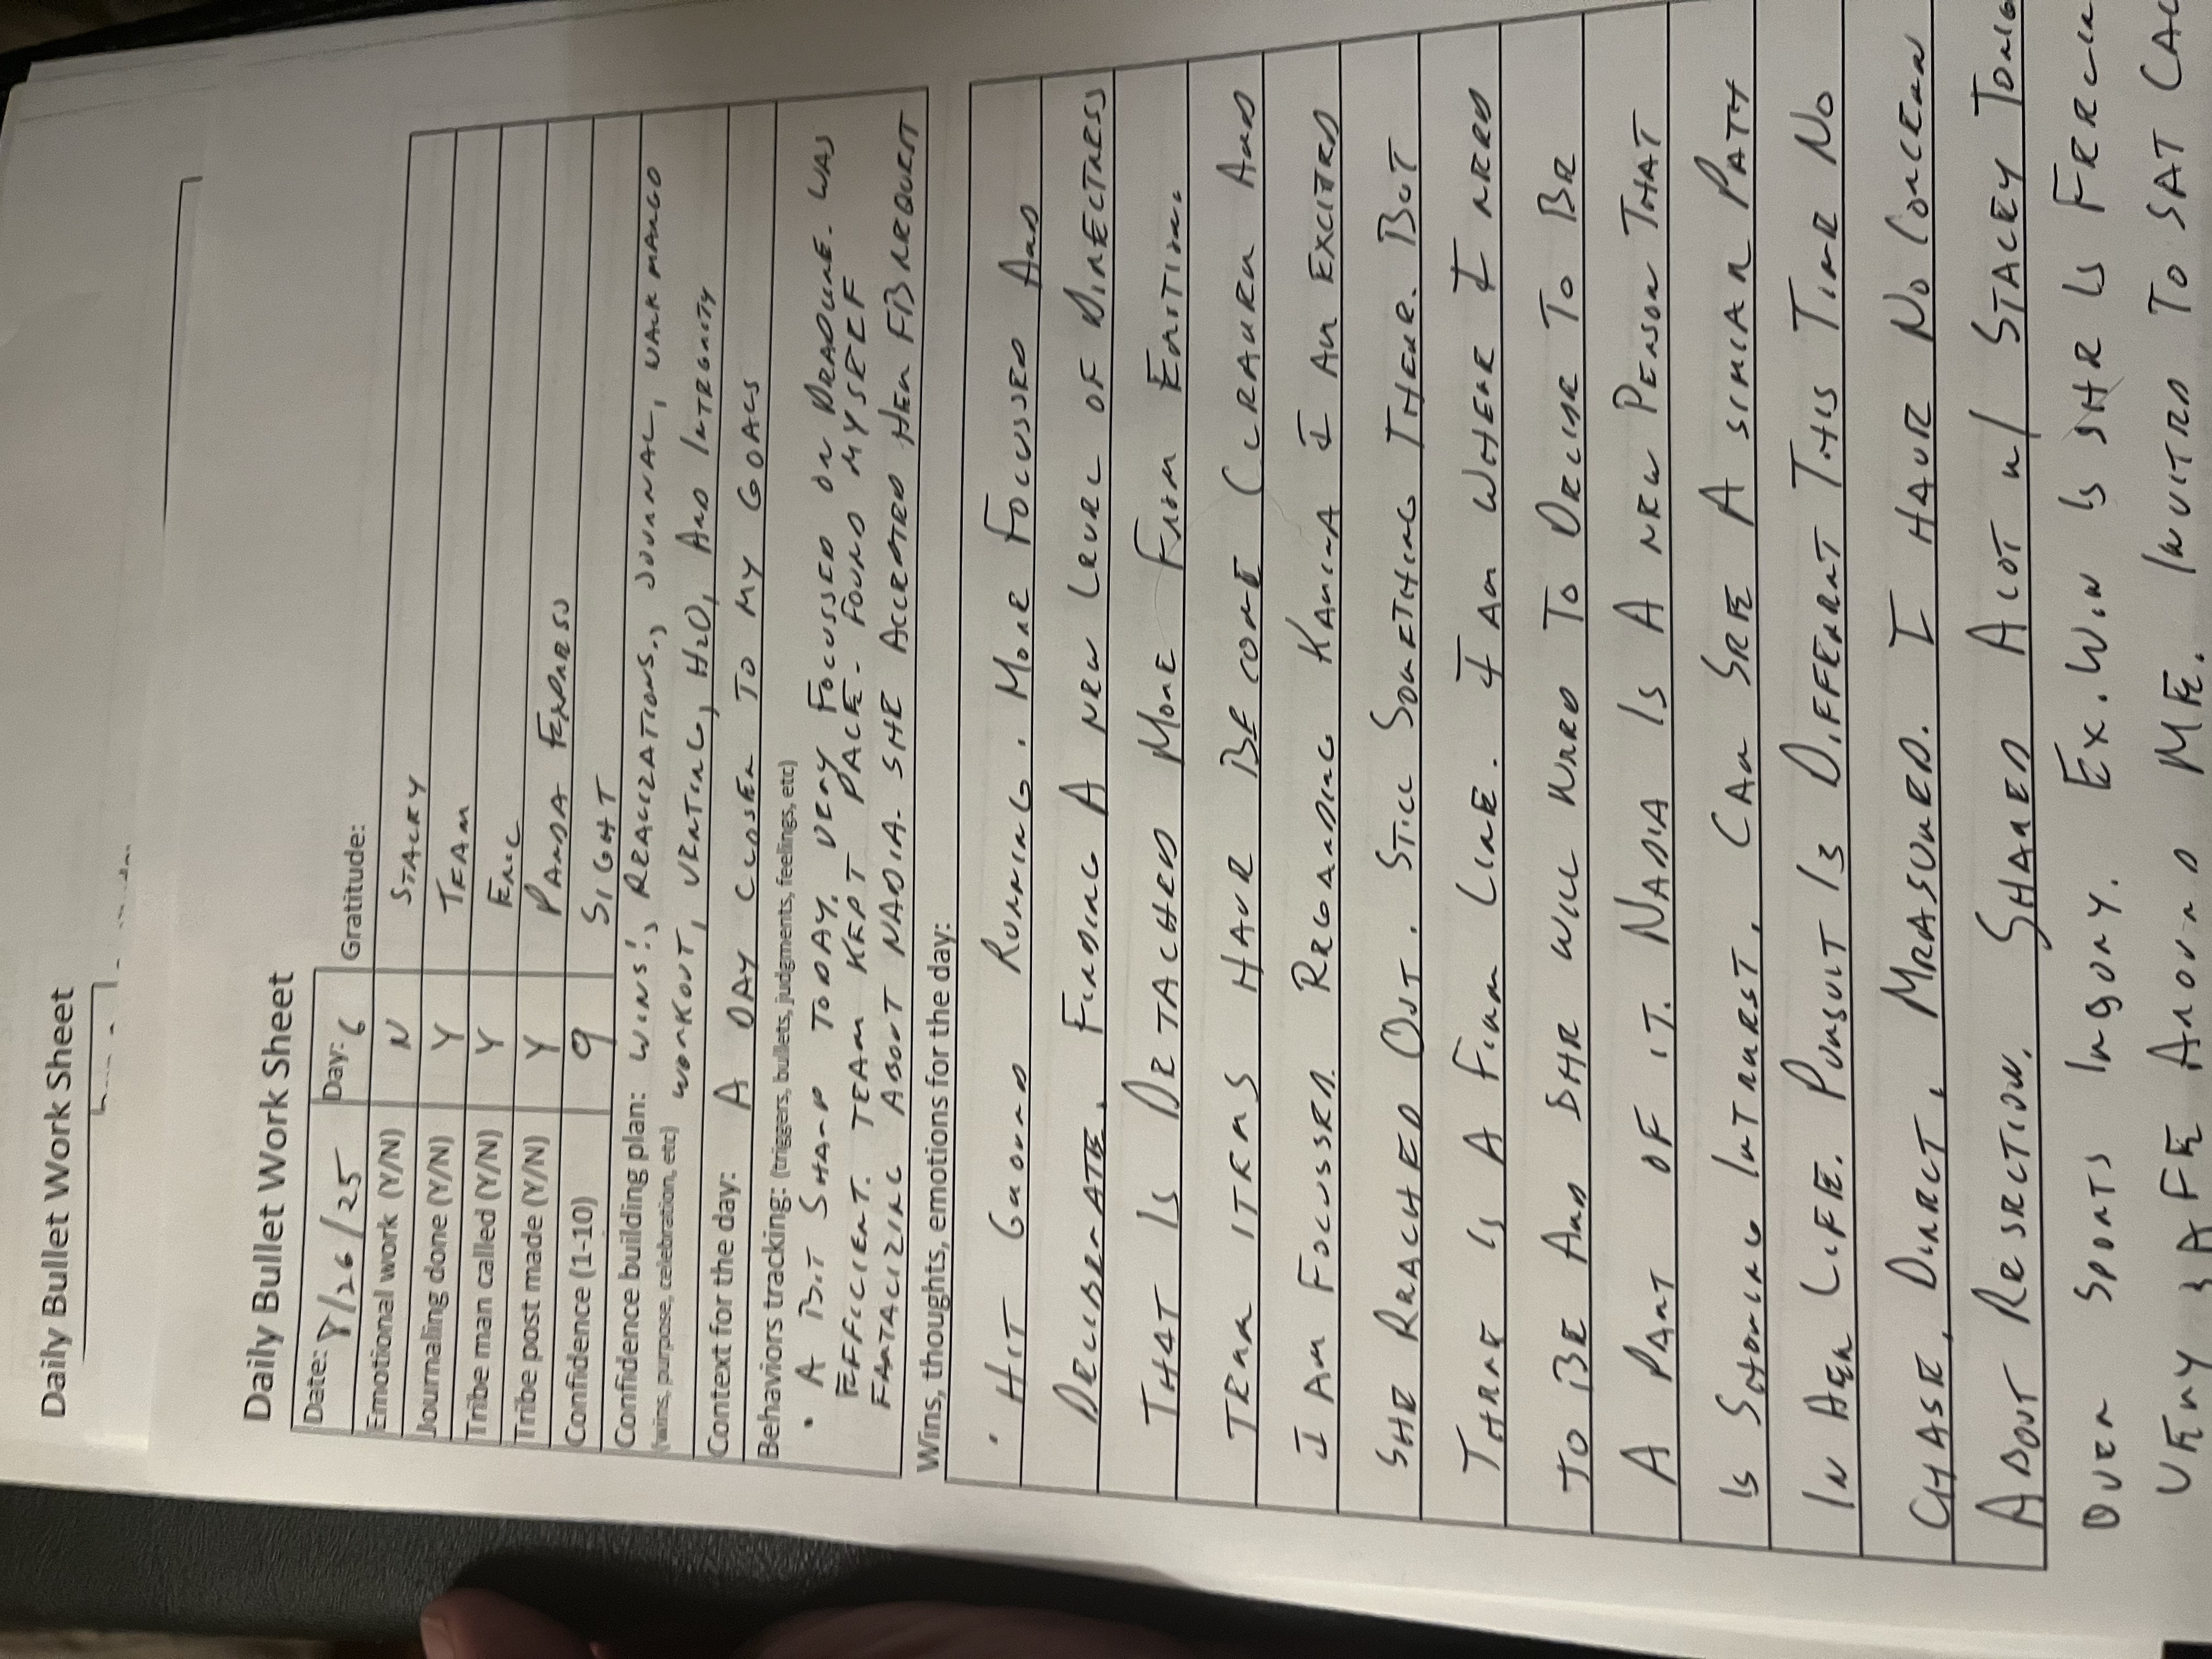 Daily Bullet Work Sheet
Daily Bullet Work Sheet
Date: 8/26/25 Day: 6 Gratitude:
Emotional work (Y/N) N STACEY
Journaling done (Y/N) Y TEAM
Tribe man called (Y/N) Y ERIC
Tribe post made (Y/N) Y PANDA EXPRESS
Confidence (1-10) 9 SIGHT
Confidence building plan: WINS!, REALIZATIONS, JOURNAL, WALK MANGO
(wins, purpose, celebration, etc) WORKOUT, VENTING, H2O, AND INTEGRITY
Context for the day: A DAY CLOSER TO MY GOALS
Behaviors tracking: (triggers, bullets, judgments, feelings, etc)
• A BIT SHARP TODAY. VERY FOCUSSED ON DEADLINE. WAS
EFFICIENT. TEAM KEPT PACE. FOUND MYSELF
FANTACIZING ABOUT NADIA. SHE ACCEPTED HER FB REQUEST
Wins, thoughts, emotions for the day:
• HIT GROUND RUNNING. MORE FOCUSSED AND
DELIBERATE. FINDING A NEW LEVEL OF DIRECTNESS
THAT IS DETACHED MORE FROM EMOTION.
TERM ITEMS HAVE BECOME CLEARER AND
I AM FOCUSSED. REGARDING KAMINA I AM EXCITED
SHE REACHED OUT. STILL SOMETHING THERE. BUT
THERE IS A FIRM LINE. I AM WHERE I NEED
TO BE AND SHE WILL NEED TO DECIDE TO BE
A PART OF IT. NADIA IS A NEW PERSON THAT
IS SHOWING INTEREST. CAN SEE A SIMILAR PATH
IN HER LIFE. PURSUIT IS DIFFERENT THIS TIME NO
CHASE, DIRECT, MEASURED. I HAVE NO CONCERN
ABOUT REJECTION. SHARED A LOT W/ STACEY
OVER SPORTS INJURY. EX. WIN IS SHE IS
VERY SAFE AROUND ME. INVITED TO SAT